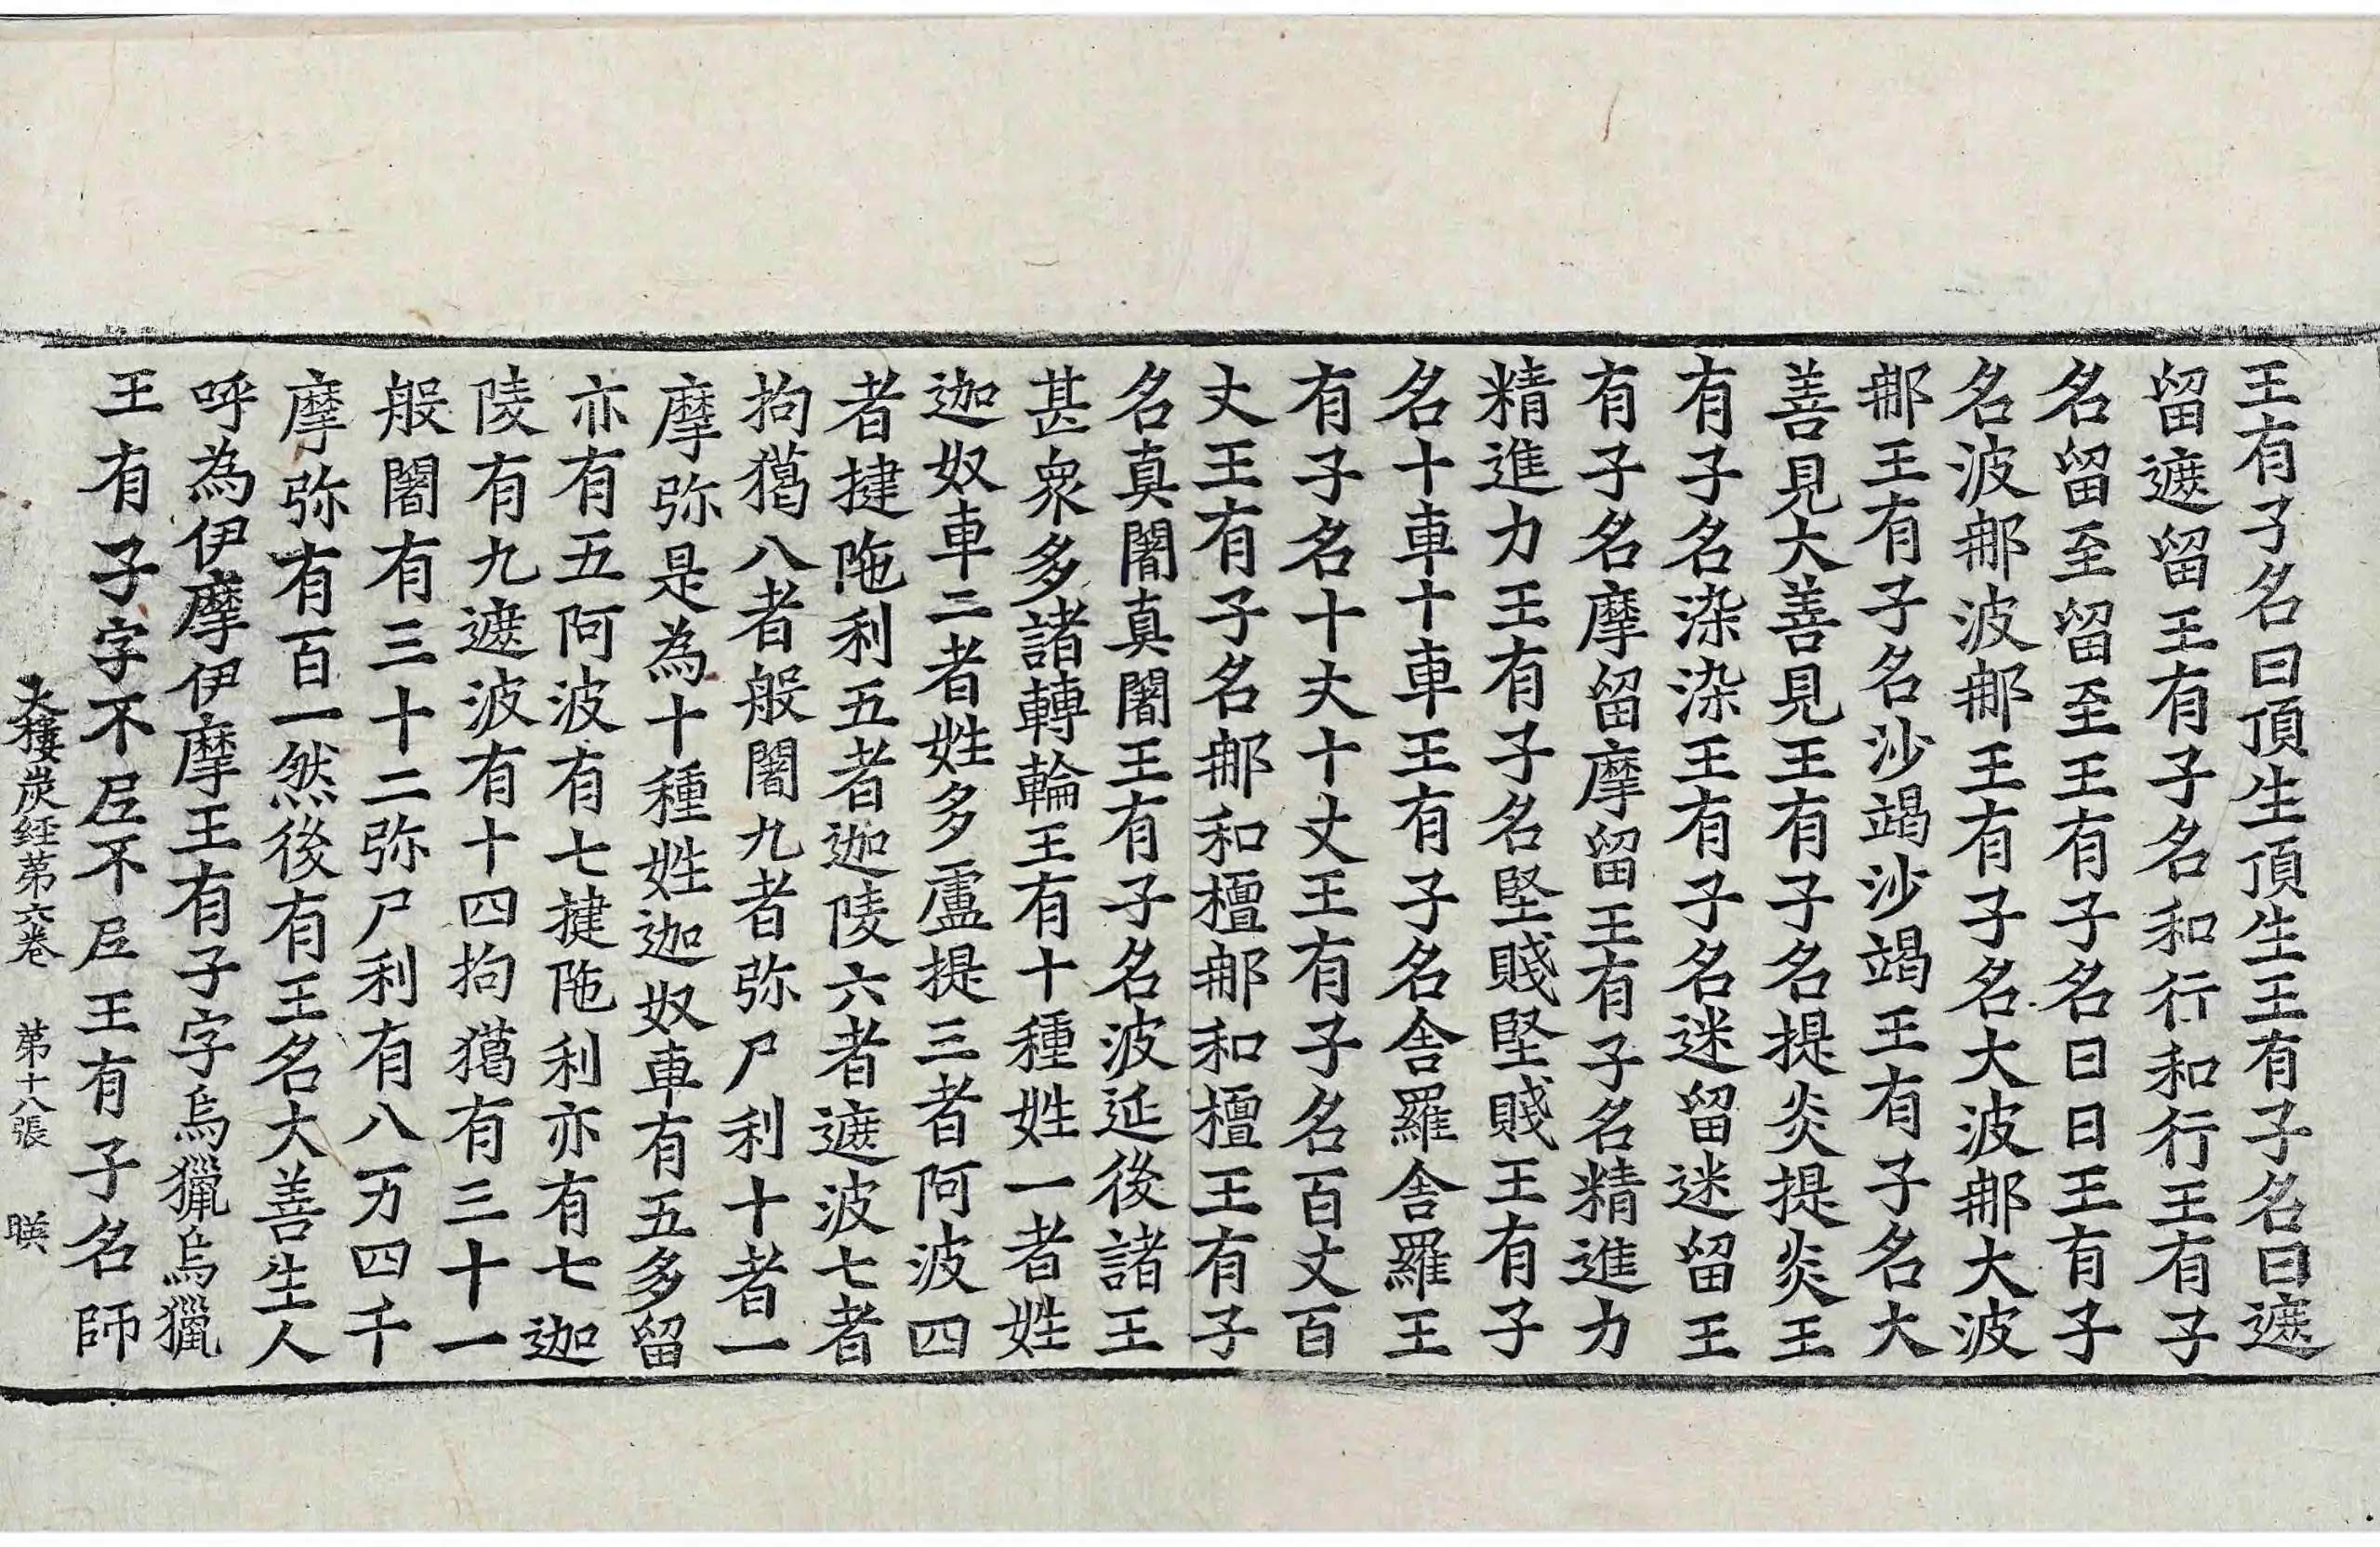 王有子名曰頂生頂生王有子名曰遮
留遮留王有子名和行和行王有子
名留至留至王有子名曰曰王有子
名波𨙻波𨙻王有子名大波𨙻大波
𨙻王有子名沙竭沙竭王有子名大
善見大善見王有子名提炎提炎王
有子名染染王有子名迷留迷留王
有子名摩留摩留王有子名精進力
精進力王有子名堅賤堅賤王有子
名十車十車王有子名舍羅舍羅王
有子名十丈十丈王有子名百丈百
丈王有子名𨙻和檀𨙻和檀王有子
名真闍真闍王有子名波延後諸王
甚衆多諸轉輪王有十種姓一者姓
迦奴車二者姓多盧提三者阿波四
者揵陁利五者迦陵六者遮波七者
拘獦八者般闍九者弥尸利十者一
摩弥是為十種姓迦奴車有五多留
亦有五阿波有七揵陁利亦有七迦
陵有九遮波有十四拘獦有三十一
般闍有三十二弥尸利有八万四千
摩弥有百一然後有王名大善生人
呼為伊摩伊摩王有子字烏獵烏獵
王有子字不𡰱不𡰱王有子名師
大樓炭経第六卷 第十八張 暎